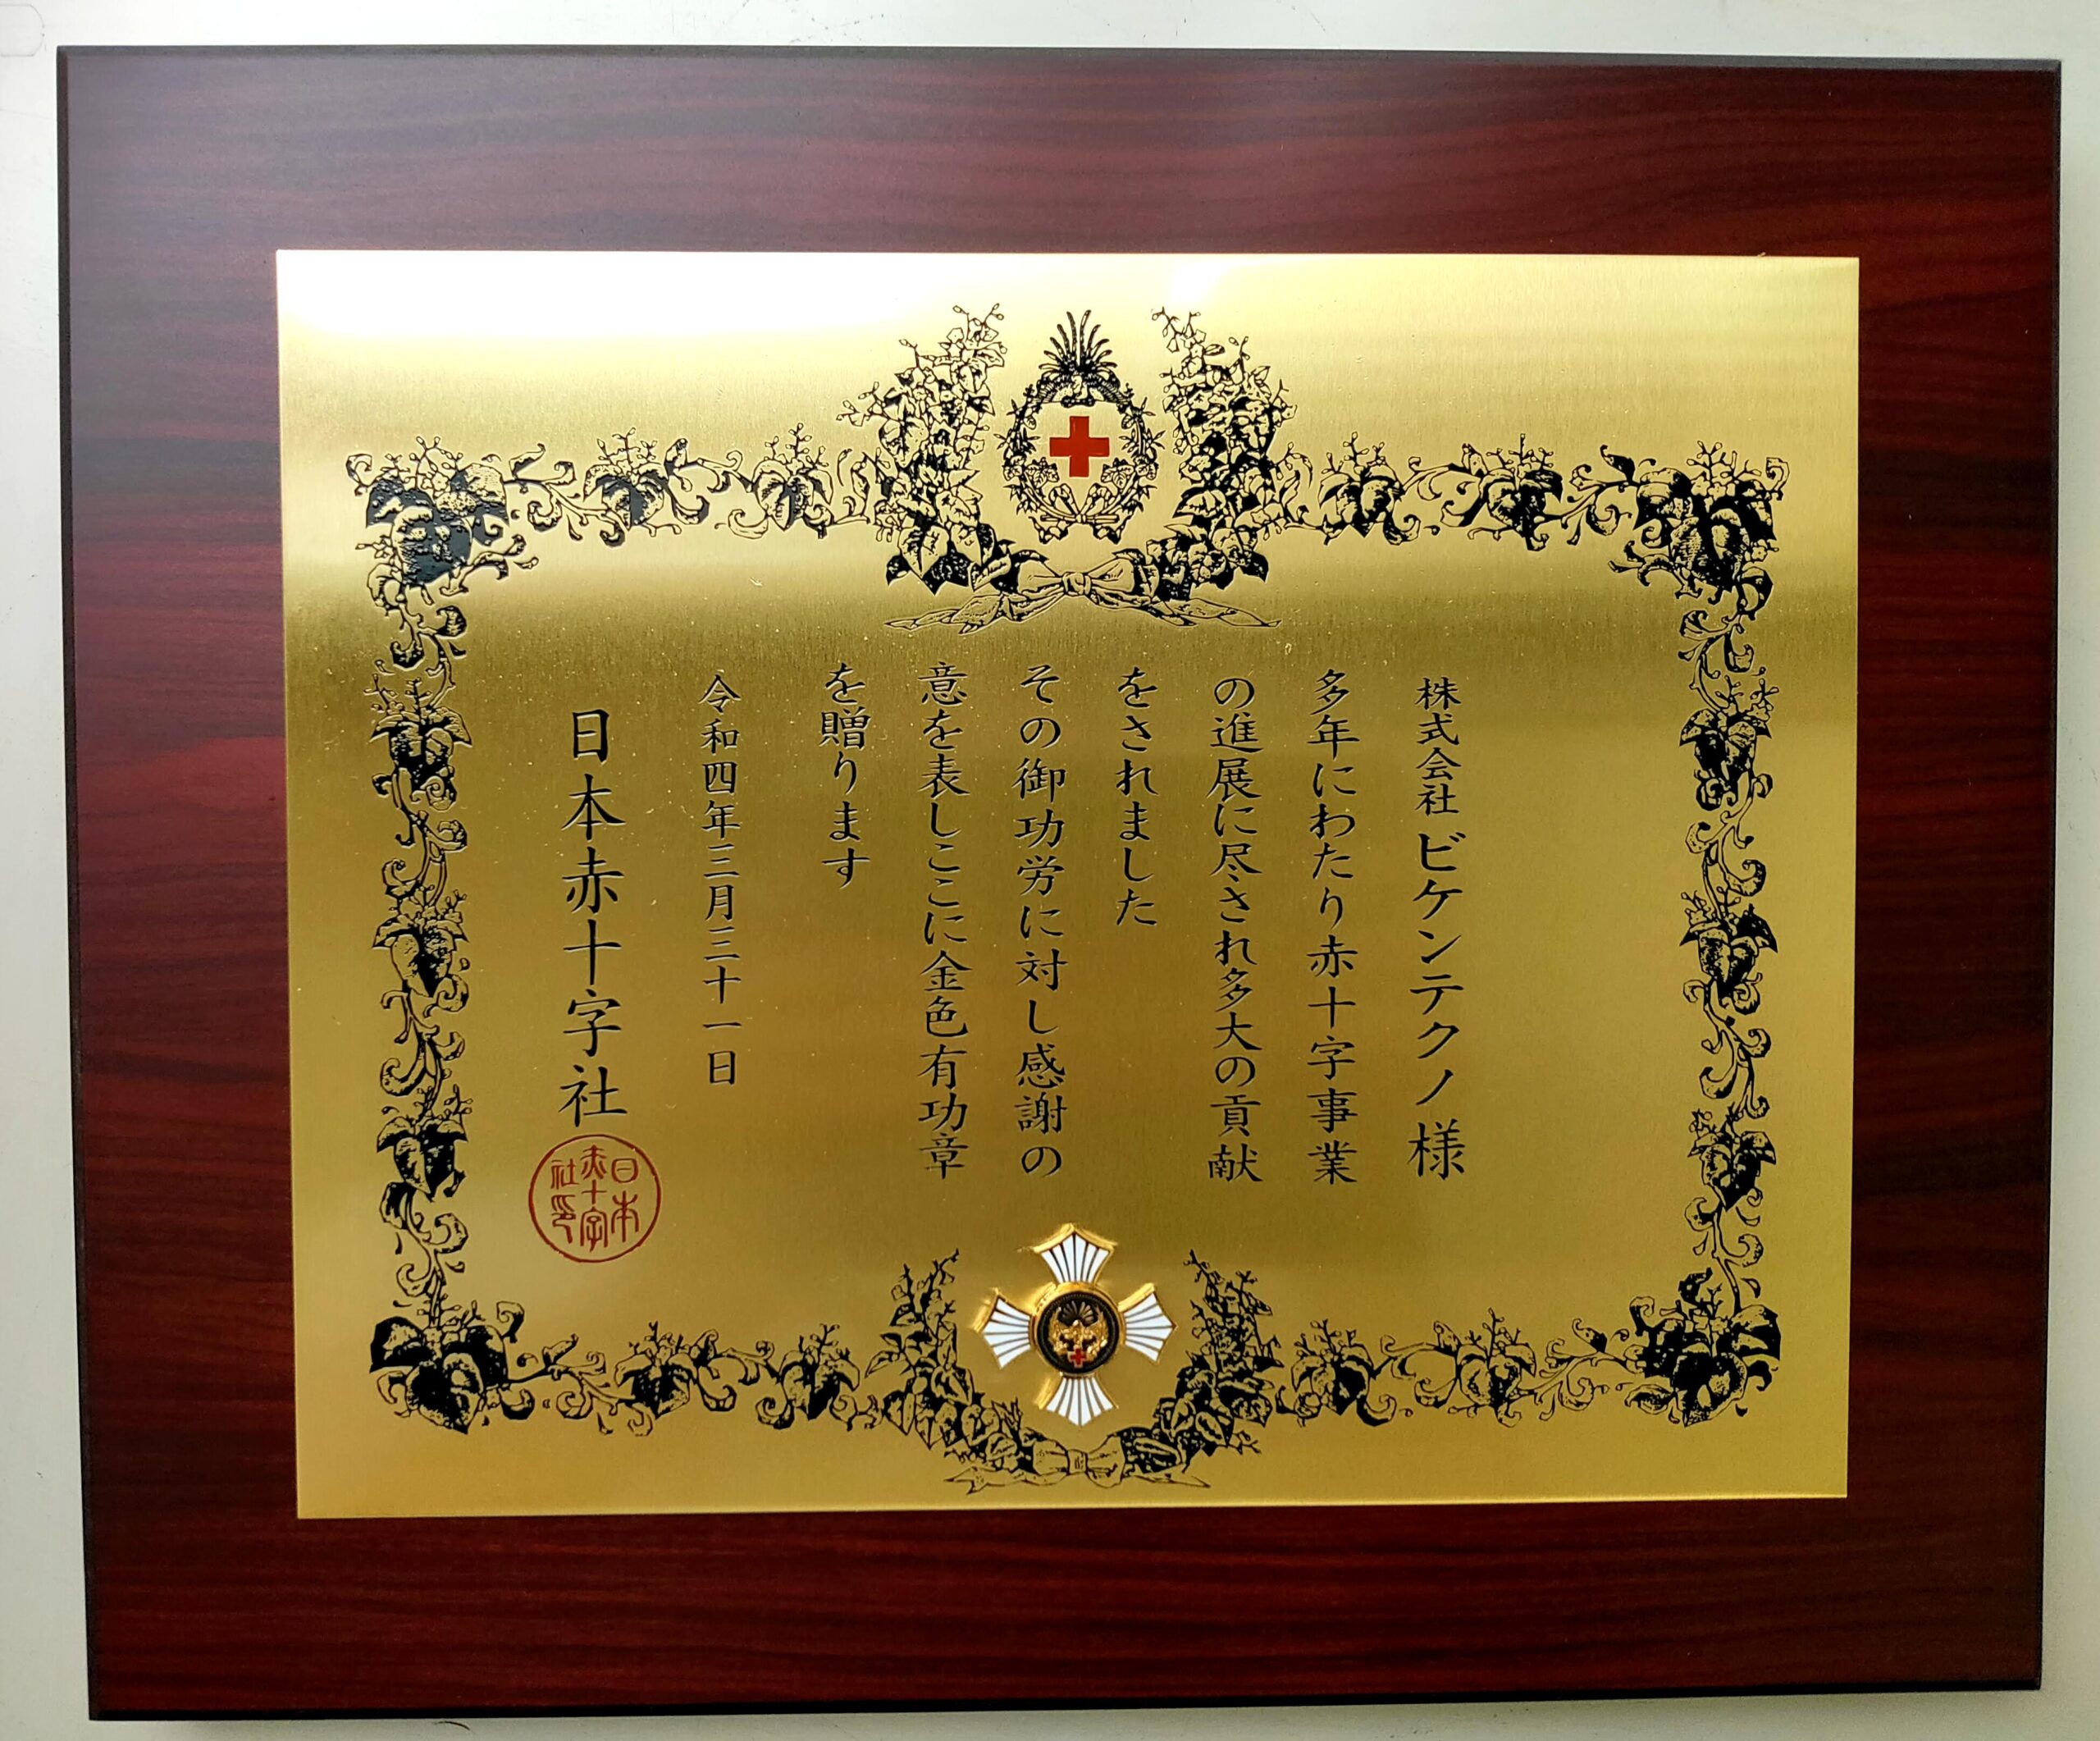 株式会社ビケンテクノ様
多年にわたり赤十字事業
の進展に尽され多大の貢献
をされました
その御功労に対し感謝の
意を表しここに金色有功章
を贈ります
令和四年三月三十一日
日本赤十字社
日本
赤十字
社印